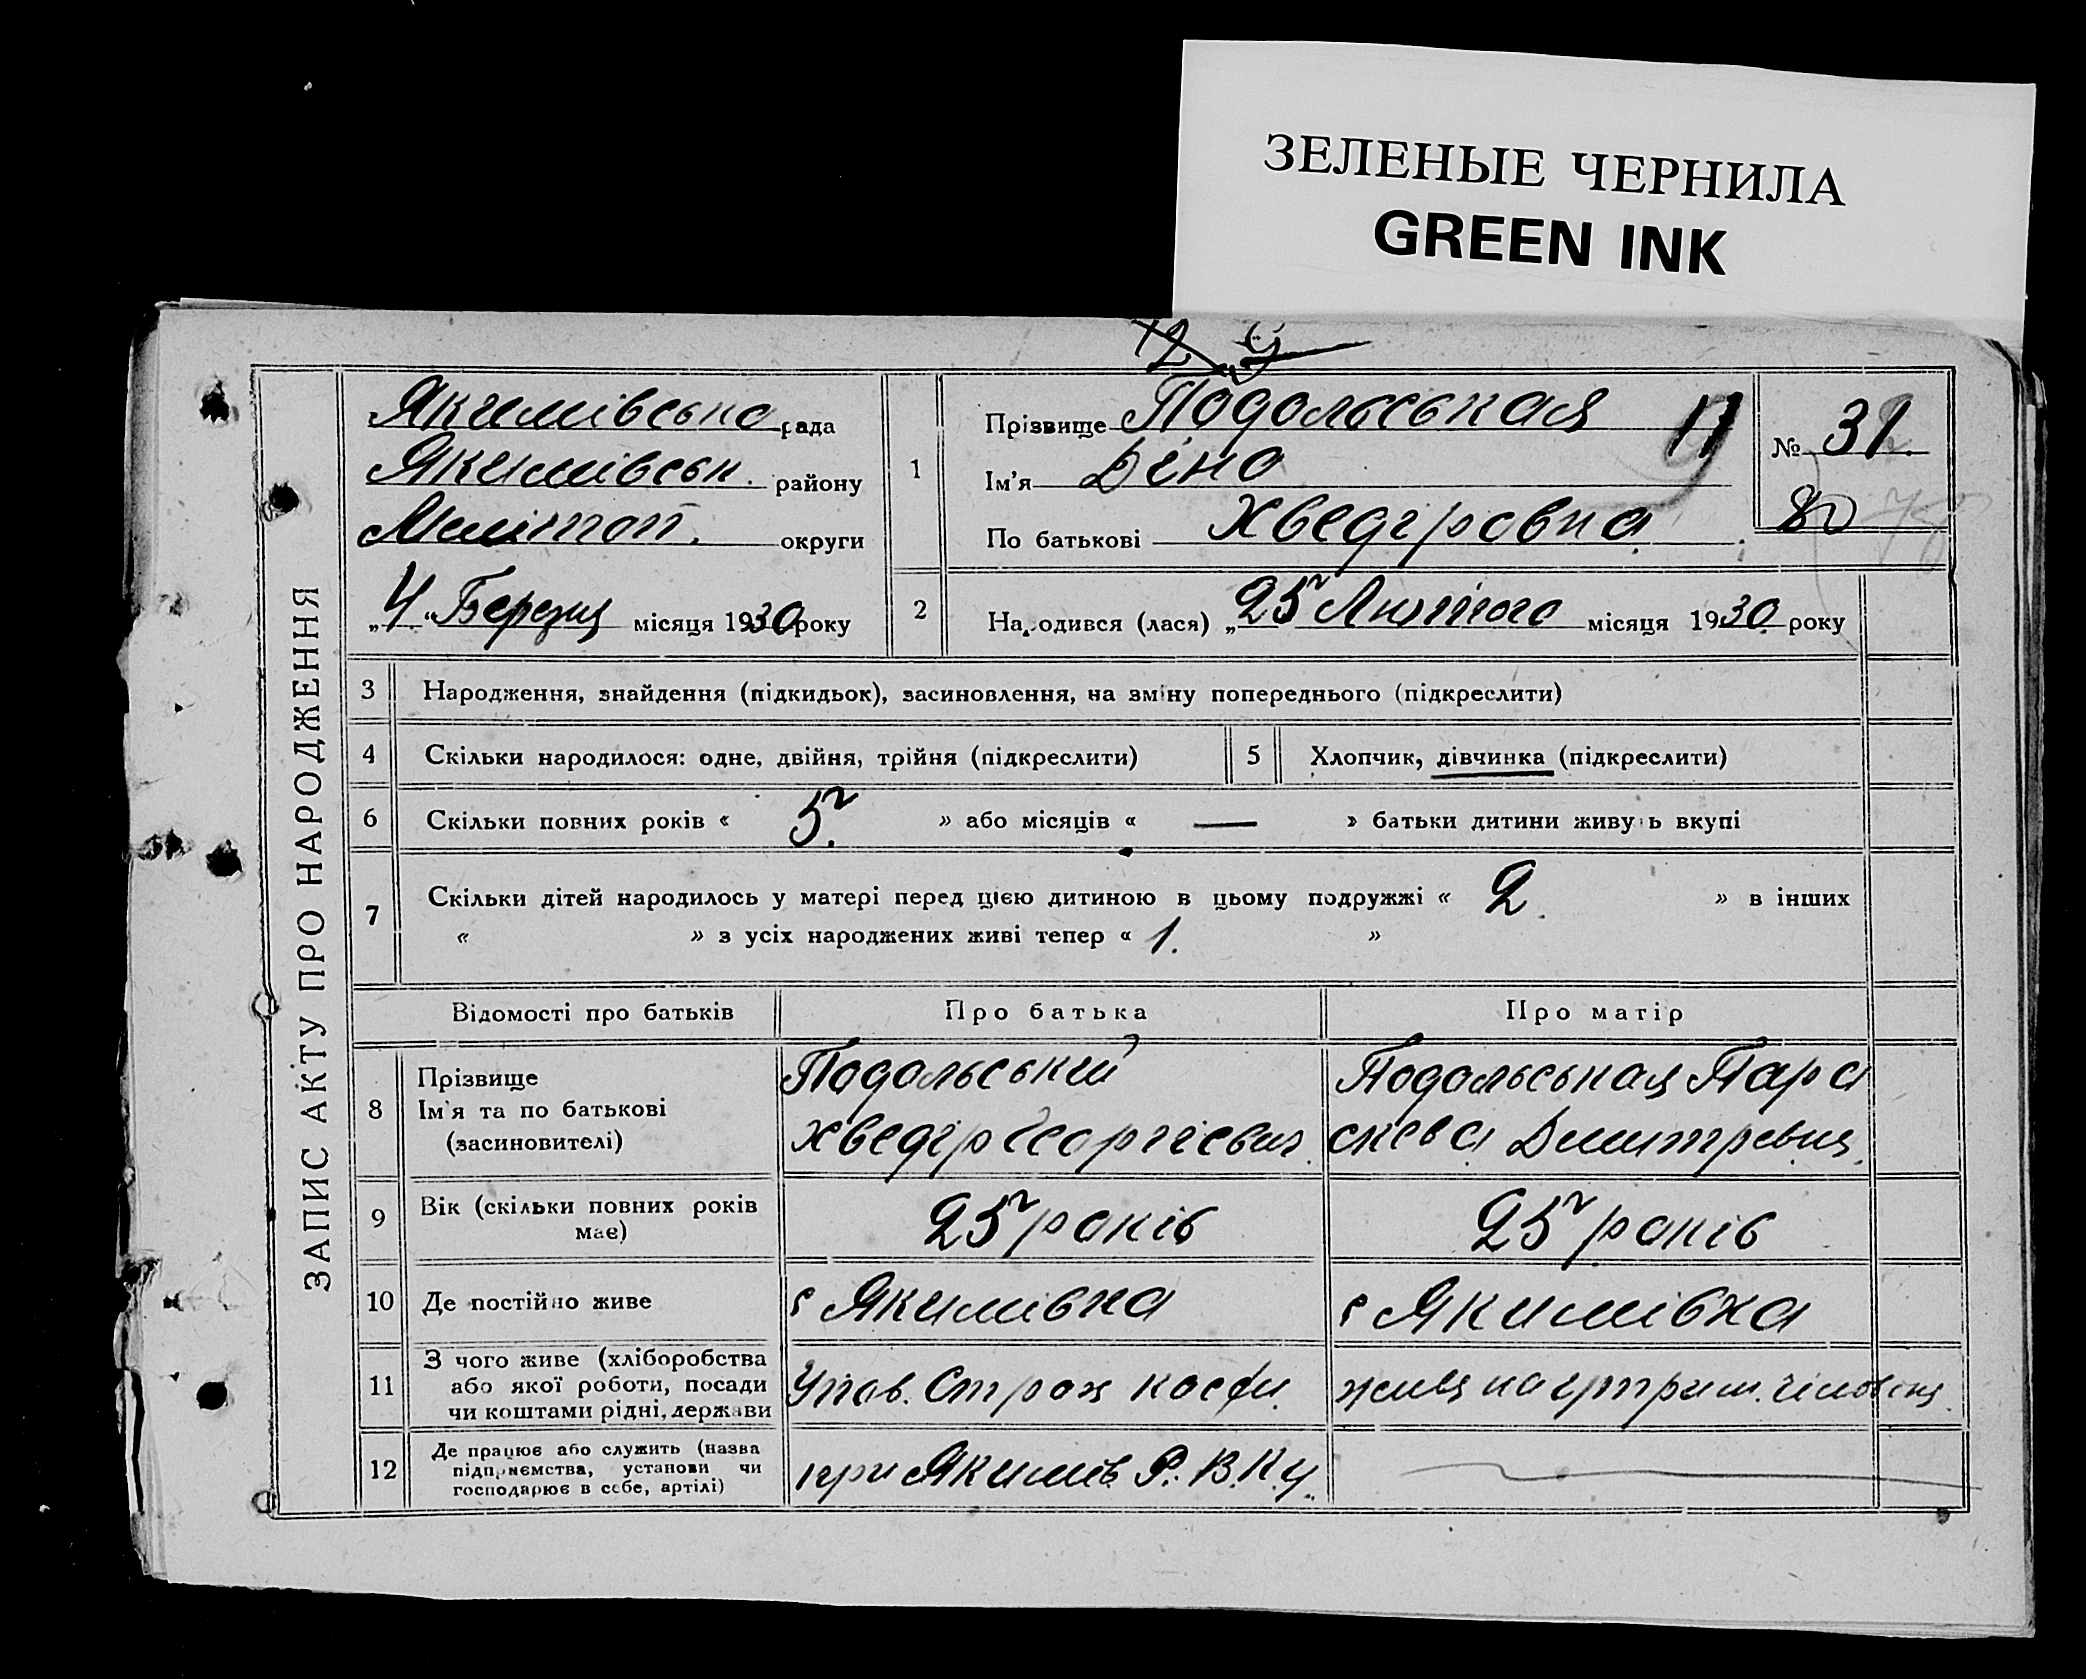 ЗЕЛЕНЫЕ ЧЕРНИЛА
GREEN INK
ЗАПИС АКТУ ПРО НАРОДЖЕННЯ
Якимівська рада
Якимівськ. району
Мелітоп. округи
„4“ Березня місяця 1930 року
1
Прізвище Подольськая 11
Ім'я Діна
По батькові Хведіровна
№ 31.
80
2 Народився (лася) „25 Лютого місяця 1930 року
3 Народження, знайдення (підкидьок), засиновлення, на зміну попереднього (підкреслити)
4 Скільки народилося: одне, двійня, трійня (підкреслити)
5 Хлопчик, дівчинка (підкреслити)
6 Скільки повних років « 5. » або місяців « — » батьки дитини живуть вкупі
7 Скільки дітей народилось у матері перед цією дитиною в цьому подружжі « 2. » в інших
« » з усіх народжених живі тепер « 1. »
Відомості про батьків Про батька Про матір
8 Прізвище
Ім'я та по батькові
(засиновителі)
Подольський
Хведір Георгіевич.
Подольськая Пара
скева Дмитревна.
9 Вік (скільки повних років
має)
25 років
25 років
10 Де постійно живе
с Якимівка
с Якимівка
11 З чого живе (хліборобства
або якої роботи, посади
чи коштами рідні, держави
Упов. Страх каси
живе на утрим. чіловіка.
12 Де працює або служить (назва
підприємства, установи чи
господарює в себе, артілі)
при Якимів. Р. В. К у.